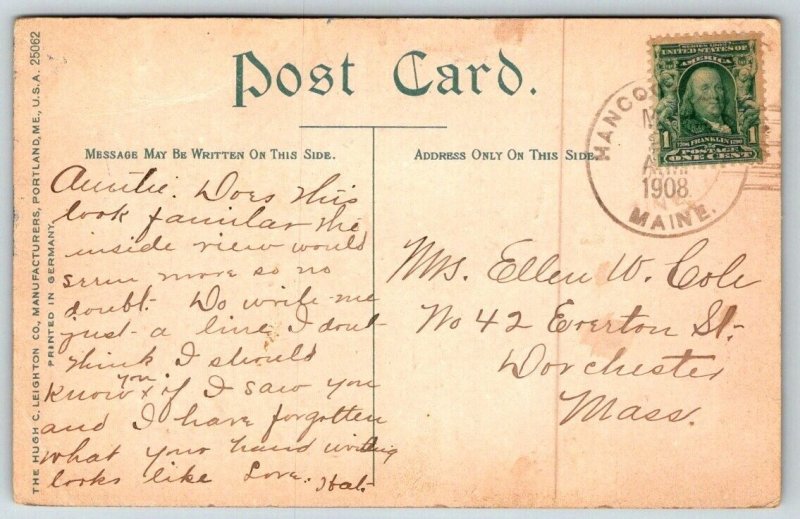 Post Card.
MESSAGE MAY BE WRITTEN ON THIS SIDE.
ADDRESS ONLY ON THIS SIDE.
THE HUGH C. LEIGHTON CO., MANUFACTURERS, PORTLAND, ME., U.S.A. 25062
PRINTED IN GERMANY.
Auntie. Does this
look familiar the
inside view would
seem more so no
doubt. Do write me
just a line I dont
think I should
know you x if I saw you
and I have forgotten
what your hand writing
looks like Love. Hat.
SERIES 1902
UNITED STATES OF
AMERICA
FRANKLIN
1 POSTAGE 1
ONE CENT
HANCO
1908
MAINE.
Mrs. Ellen W. Cole
No 42 Everton St.
Dorchester
Mass.